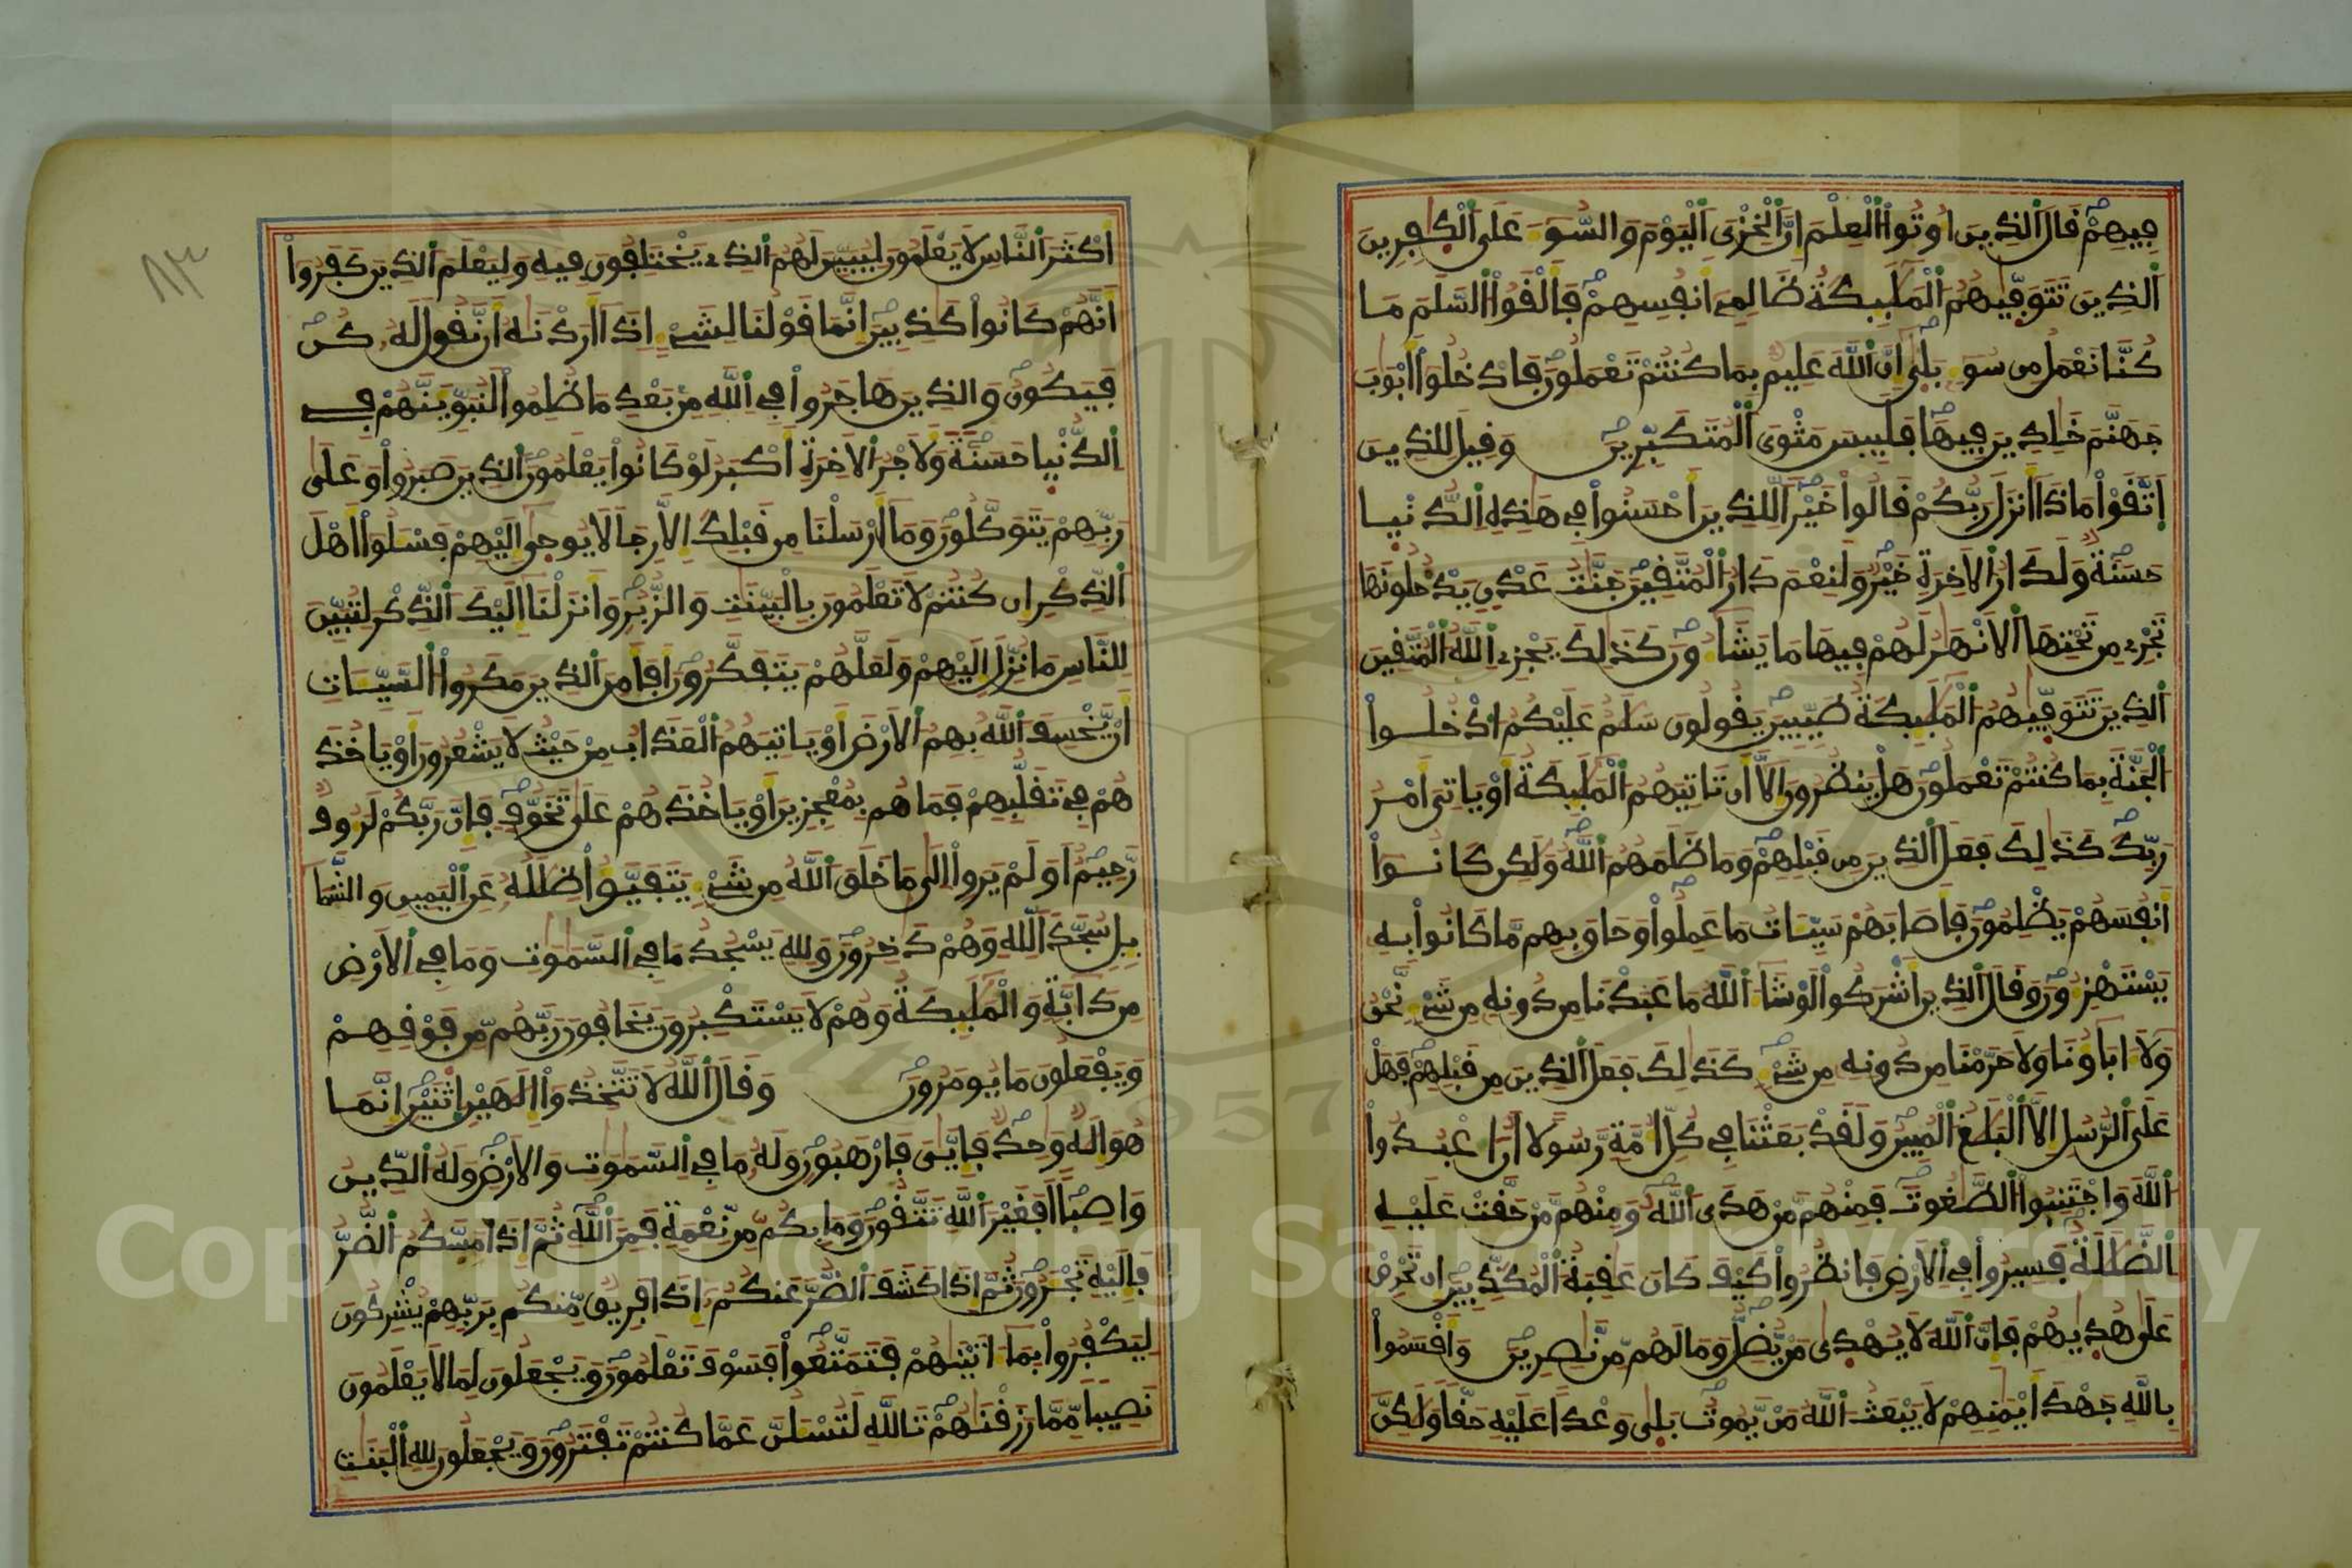 فيهم قال الذين اوتوا العلم ان الخزى اليوم والسو على الكفرين
الذين تتوفيهم المليكة ظالمے انفسهم فالقوا السلم ما
كنا نعمل من سو بلى ان الله عليم بما كنتم تعملون فادخلوا ابوب
جهنم خلدين فيها فلبيس مثوى المتكبرين وقيل للذين
اتقوا ماذا انزل ربكم قالوا خيرا للذين احسنوا في هذه الدنيا
حسنة ولدار الاخرة خير ولنعم دار المتقين جنت عدن يدخلونها
تجرے من تحتها الانهر لهم فيها ما يشاون كذلك يجزے الله المتقين
الذين تتوفيهم المليكة طيبين يقولون سلم عليكم ادخلوا
الجنة بما كنتم تعملون هل ينظرون الا ان تاتيهم المليكة او ياتي امر
ربك كذلك فعل الذين من قبلهم وما ظلمهم الله ولكن كانوا
انفسهم يظلمون فاصابهم سيات ما عملوا وحاق بهم ما كانوا به
يستهزون وقال الذين اشركوا لو شا الله ما عبدنا من دونه من شے نحن
ولا اباونا ولا حرمنا من دونه من شے كذلك فعل الذين من قبلهم فهل
على الرسل الا البلغ المبين ولقد بعثنا في كل امة رسولا ان اعبدوا
الله واجتنبوا الطغوت فمنهم من هدى الله ومنهم من حقت عليه
الضللة فسيروا في الارض فانظروا كيف كان عقبة المكذبين ان تحرص
على هديهم فان الله لا يهدى من يضل وما لهم من نصرين واقسموا
بالله جهد ايمنهم لا يبعث الله من يموت بلى وعدا عليه حقا ولكن
٨٣
اكثر الناس لا يعلمون ليبين لهم الذے يختلفون فيه وليعلم الذين كفروا
انهم كانوا كذبين انما قولنا لشے اذا اردنه ان نقول له كن
فيكون والذين هاجروا في الله من بعد ما ظلموا لنبوينهم في
الدنيا حسنة ولاجر الاخرة اكبر لو كانوا يعلمون الذين صبروا وعلى
ربهم يتوكلون وما ارسلنا من قبلك الا رجالا يوحى اليهم فسلوا اهل
الذكر ان كنتم لا تعلمون بالبينت والزبر وانزلنا اليك الذكر لتبين
للناس ما نزل اليهم ولعلهم يتفكرون افامن الذين مكروا السيات
ان يخسف الله بهم الارض او ياتيهم العذاب من حيث لا يشعرون او ياخذ
هم في تقلبهم فما هم بمعجزين او ياخذهم على تخوف فان ربكم لروف
رحيم اولم يروا الى ما خلق الله من شے يتفيوا ظلله عن اليمين والشما
يل سجدا لله وهم دخرون ولله يسجد ما في السموت وما في الارض
من دابة والمليكة وهم لا يستكبرون يخافون ربهم من فوقهم
ويفعلون ما يومرون وقال الله لا تتخذوا الهين اثنين انما
هو اله وحد فايى فارهبون وله ما في السموت والارض وله الدين
واصبا افغير الله تتقون وما بكم من نعمة فمن الله ثم اذا مسكم الضر
فاليه تجرون ثم اذا كشف الضر عنكم اذا فريق منكم بربهم يشركون
ليكفروا بما اتينهم فتمتعوا فسوف تعلمون ويجعلون لما لا يعلمون
نصيبا مما رزقنهم تالله لتسلن عما كنتم تفترون ويجعلون لله البنت
Copyright © King Saud University
1957